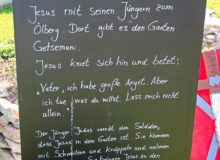 Jesus mit seinen Jüngern zum
Ölberg. Dort gibt es den Garten
Getsemani.
Jesus kniet sich hin und betet:
"Vater, ich habe große Angst. Aber
ich tue was du willst. Lass mich nicht
allein.
Der Jünger Judas verrät den Soldaten,
dass Jesus in den Garten ist Sie kommen
mit Schwertern und Knüppeln und nehmen
Sie bringen Jesus zu den